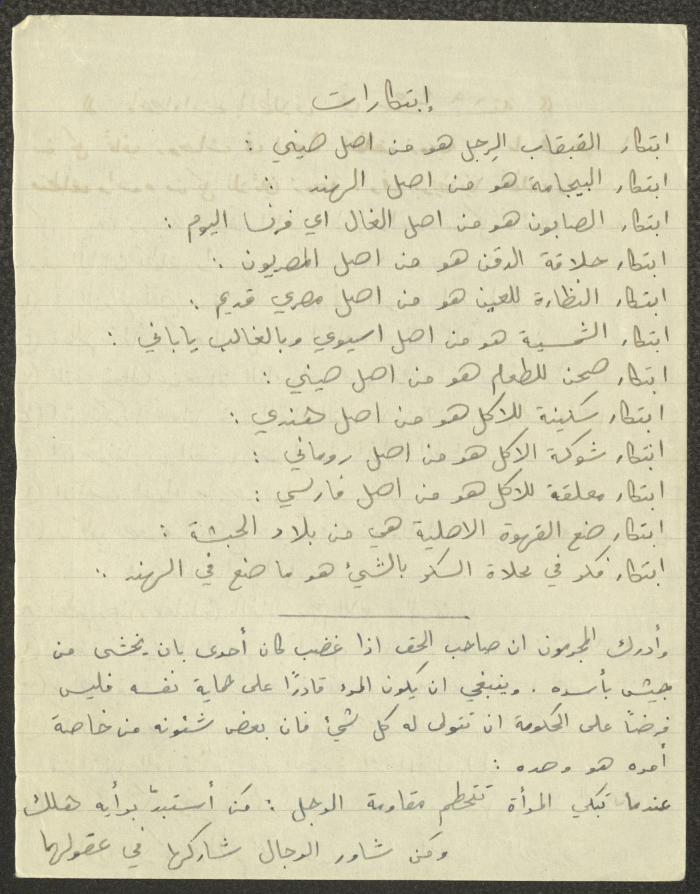 إبتكارات
ابتكار القبقاب الرجل هو من اصل صيني :
ابتكار البيجامة هو من اصل الهند :
ابتكار الصابون هو من اصل الغال اي فرنسا اليوم :
ابتكار حلاقة الدقن هو من اصل المصريون :
ابتكار النظارة للعين هو من اصل مصري قديم :
ابتكار الشمسية هو من اصل اسيوي وبالغالب ياباني :
ابتكار صحن للطعام هو من اصل صيني :
ابتكار سكينة للاكل هو من اصل هندي :
ابتكار شوكة الاكل هو من اصل روماني :
ابتكار معلقة للاكل هو من اصل فارسي :
ابتكار صنع القهوة الاصلية هي من بلاد الحبشة :
ابتكار فكر في محلاة السكر بالشيئ هو ما صنع في الهند :
وأدرك المجرمون ان صاحب الحق اذا غضب كان أحرى بان يخشى من
جيش بأسره . وينبغي ان يكون المرء قادرًا على حماية نفسه فليس
فرضاً على الحكومة ان تتولى له كل شيئ فان بعض شئونه من خاصة
أمره هو وحده :
عندما تبكي المرأة تتحطم مقاومة الرجل : مَن أستبدّ برأيه هلك
ومَن شاور الرجال شاركها في عقولها